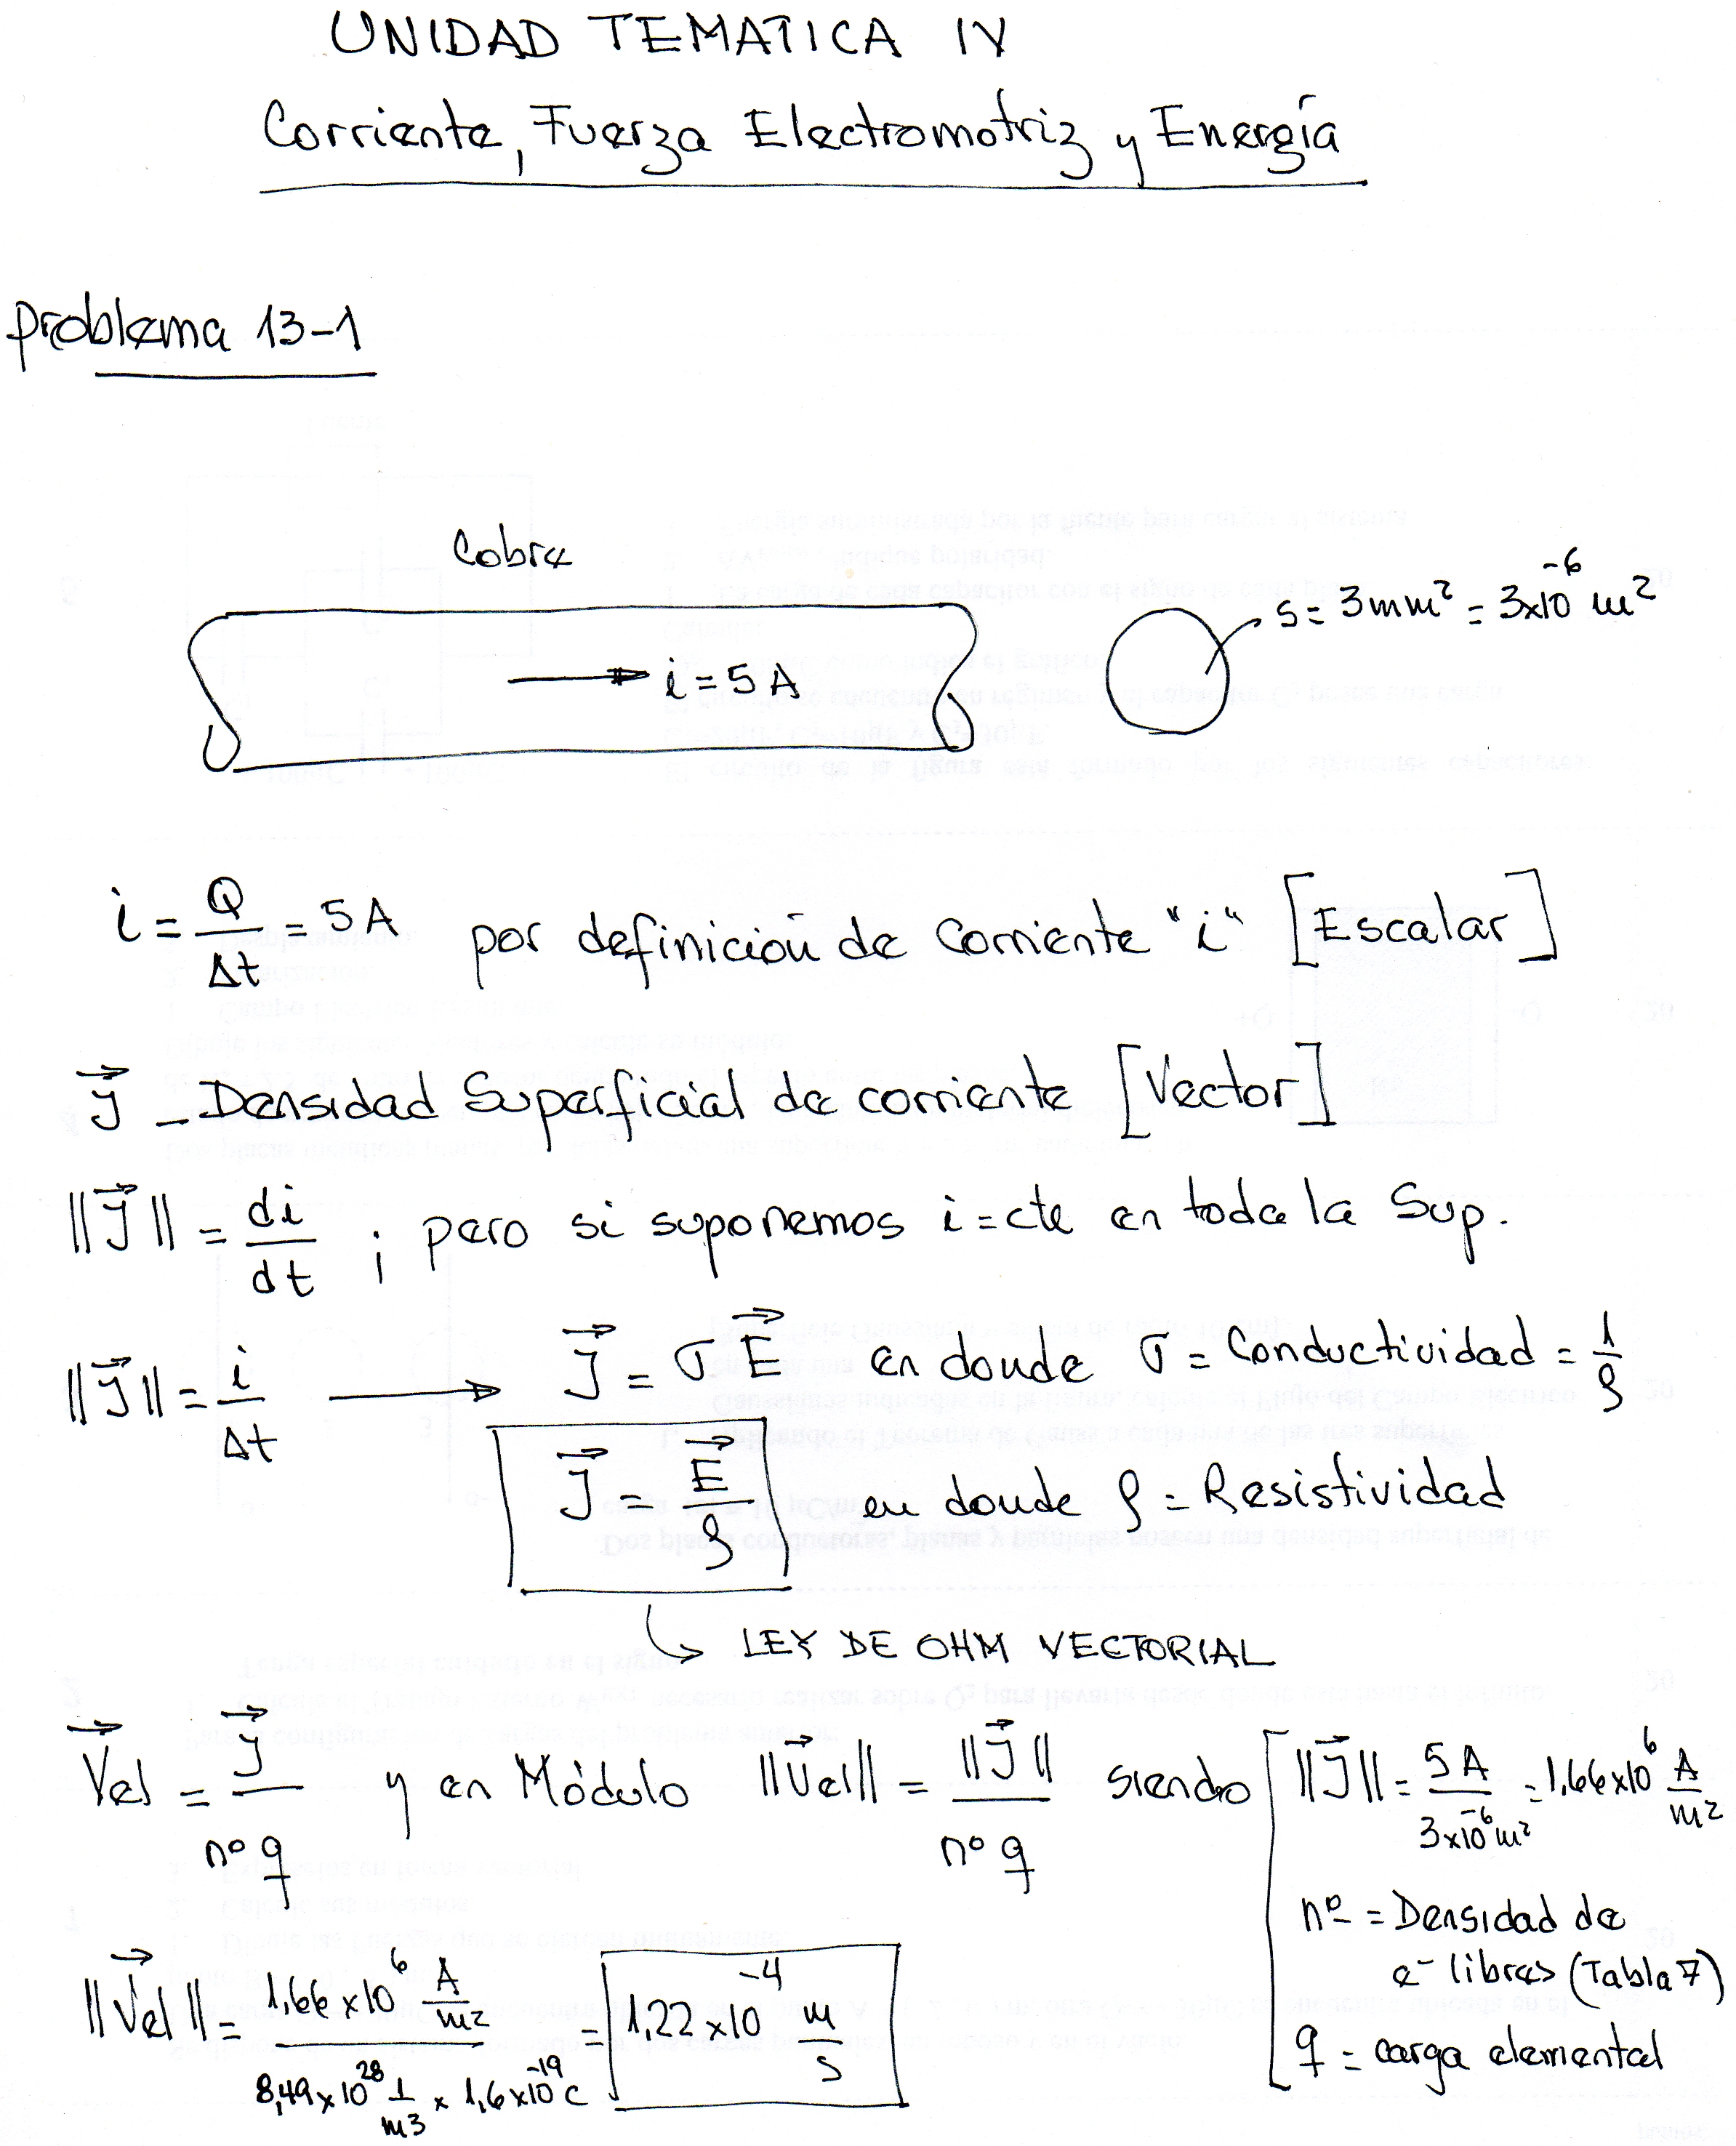 UNIDAD TEMATICA IV
Corriente, Fuerza Electromotriz y Energía
problema 13-1
Cobre
i = 5 A
s = 3 mm² = 3x10⁻⁶ m²
i = Q/Δt = 5 A por definición de corriente "i" [Escalar]
J⃗ _ Densidad Superficial de corriente [Vector]
||J⃗|| = di/dt ; pero si suponemos i = cte en toda la Sup.
||J⃗|| = i/Δt → J⃗ = σ E⃗ en donde σ = Conductividad = 1/ρ
J⃗ = E⃗/ρ en donde ρ = Resistividad
LEY DE OHM VECTORIAL
V⃗el = J⃗/nº q y en Módulo ||V⃗el|| = ||J⃗||/nº q siendo ||J⃗|| = 5 A/3x10⁻⁶ m² = 1,66x10⁶ A/m²
nº = Densidad de
e⁻ libres (Tabla 7)
q = carga elemental
||V⃗el|| = 1,66 x 10⁶ A/m² / 8,49 x 10²⁸ 1/m³ x 1,6 x 10⁻¹⁹ C = 1,22 x 10⁻⁴ m/s